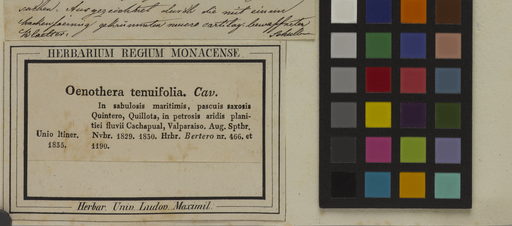 Ausgezeichnet durch die mit einem
HERBARIUM REGIUM MONACENSE.
Oenothera tenuifolia. Cav.
In sabulosis maritimis, pascuis saxosis
Quintero, Quillota, in petrosis aridis plani-
tiei fluvii Cachapual, Valparaiso. Aug. Spthr.
Unio Itiner. Nvbr. 1829. 1830. Hrbr. Bertero nr. 466. et
1835. 1190.
Herbar. Univ. Ludov. Maximil.